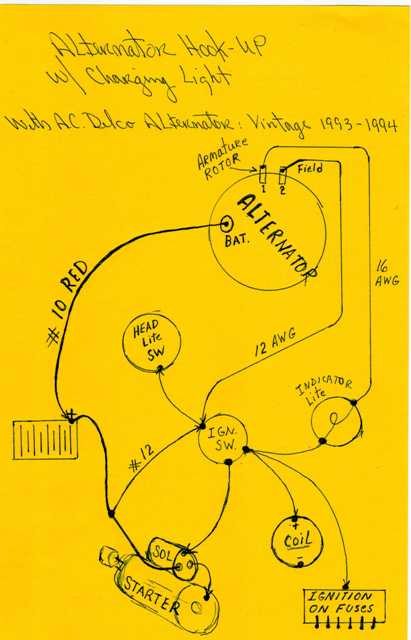 Alternator Hook-Up
w/ Charging Light
With A.C. Delco Alternator: Vintage 1993-1994
ARMATURE
ROTOR
Field
1 2
ALTERNATOR
BAT.
# 10 RED
16
AWG
HEAD
Lite
SW
12 AWG
INDICATOR
Lite
+
IGN.
SW.
#12
SOL
STARTER
+
COIL
-
IGNITION
ON FUSES